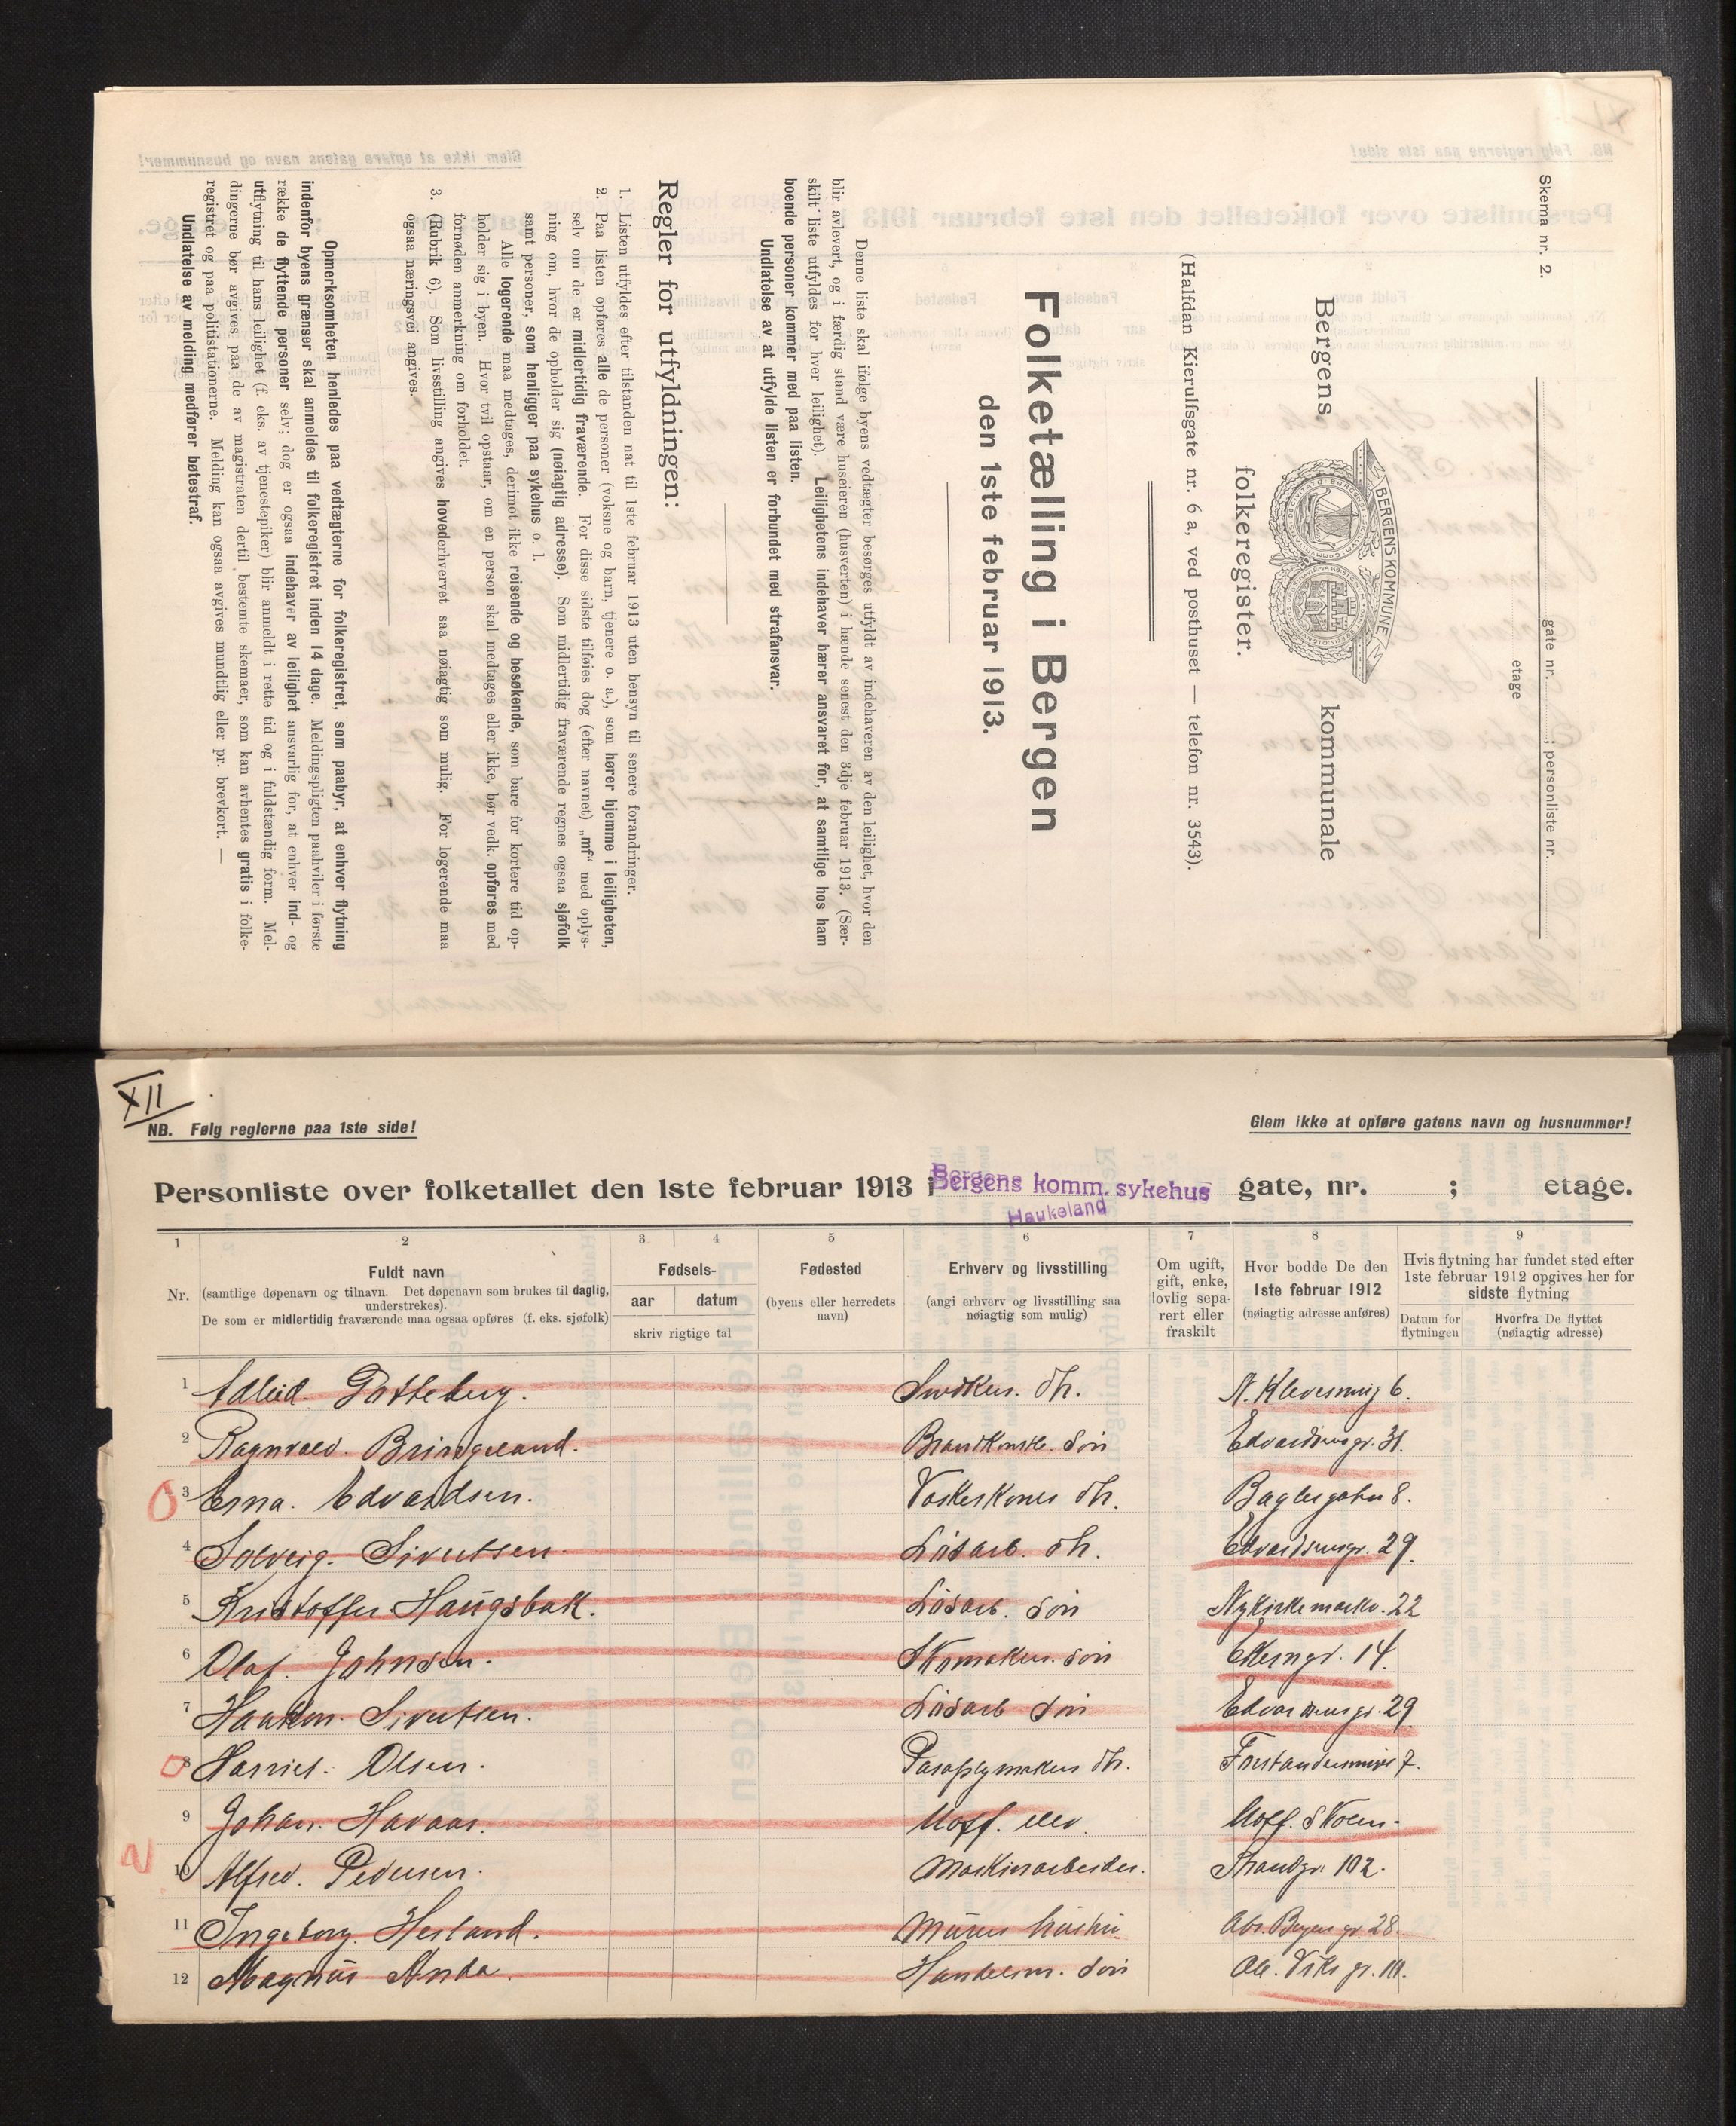 Skema nr. 2.
gate nr. i personliste nr.
etage
Bergens kommunale
BERGENS KOMMUNE
folkeregister.
(Halfdan Kierulfsgate nr. 6 a, ved posthuset — telefon nr. 3543).
Folketælling i Bergen
den 1ste februar 1913.
Denne liste skal ifølge byens vedtægter besørges utfyldt av indehaveren av den leilighet, hvor den
blir avlevert, og i færdig stand være huseieren (husverten) i hænde senest den 3dje februar 1913. (Sær-
skilt liste utfyldes for hver leilighet). Leilighetens indehaver bærer ansvaret for, at samtlige hos ham
boende personer kommer med paa listen.
Undlatelse av at utfylde listen er forbundet med strafansvar.
Regler for utfyldningen:
1. Listen utfyldes efter tilstanden nat til 1ste februar 1913 uten hensyn til senere forandringer.
2. Paa listen opføres alle de personer (voksne og barn, tjenere o. a.), som hører hjemme i leiligheten,
selv om de er midlertidig fraværende. For disse sidste tilføies dog (efter navnet) „mf“ med oplys-
ning om, hvor de opholder sig (nøiagtig adresse). Som midlertidig fraværende regnes ogsaa sjøfolk
samt personer, som henligger paa sykehus o. l.
Alle logerende maa medtages, derimot ikke reisende og besøkende, som bare for kortere tid op-
holder sig i byen. Hvor tvil opstaar, om en person skal medtages eller ikke, bør vedk. opføres med
fornøden anmerkning om forholdet.
3. (Rubrik 6). Som livsstilling angives hovederhvervet saa nøiagtig som mulig. For logerende maa
ogsaa næringsvei angives.
Opmerksomheten henledes paa vedtægterne for folkeregistret, som paabyr, at enhver flytning
indenfor byens grænser skal anmeldes til folkeregistret inden 14 dage. Meldingspligten paahviler i første
række de flyttende personer selv; dog er ogsaa indehaver av leilighet ansvarlig for, at enhver ind- og
utflytning til hans leilighet (f. eks. av tjenestepiker) blir anmeldt i rette tid og i fuldstændig form. Mel-
dingerne bør avgives paa de av magistraten dertil bestemte skemaer, som kan avhentes gratis i folke-
registret og paa politistationerne. Melding kan ogsaa avgives mundtlig eller pr. brevkort. —
Undlatelse av melding medfører bøtestraf.
XII
NB. Følg reglerne paa 1ste side!
Glem ikke at opføre gatens navn og husnummer!
Personliste over folketallet den 1ste februar 1913 i Bergens komm. sykehus gate, nr. ; etage.
Haukeland
1 2 3 4 5 6 7 8 9
Nr.
Fuldt navn
(samtlige døpenavn og tilnavn. Det døpenavn som brukes til daglig,
understrekes).
De som er midlertidig fraværende maa ogsaa opføres (f. eks. sjøfolk)
Fødsels-
aar datum
skriv rigtige tal
Fødested
(byens eller herredets
navn)
Erhverv og livsstilling
(angi erhverv og livsstilling saa
nøiagtig som mulig)
Om ugift,
gift, enke,
lovlig sepa-
rert eller
fraskilt
Hvor bodde De den
1ste februar 1912
(nøiagtig adresse anføres)
Hvis flytning har fundet sted efter
1ste februar 1912 opgives her for
sidste flytning
Datum for
flytningen
Hvorfra De flyttet
(nøiagtig adresse)
1 Snedker. dtr. 6.
2 Ragnvald. Bringeland. Brandkonst. søn Edvardsensgt. 31.
3 Erna. Edvardsen. Vaskekones dtr. Baglergaten 8.
4 Solveig. Sivertsen. Løsarb. dtr. Edvardsensgt. 29.
5 Kristoffer Haugsbak. Løsarb. søn Nykirkealm. 22
6 Olaf. Johnsen. Skomaker. søn 14.
7 Haakon. Sivertsen. Løsarb søn Edvardsensgt. 29
8 Harriet. Olsen. Paraplymakers dtr. Forstandersmuget 7.
9 Johan. Havaas. Uoff. elev. Uoff. Skolen.
10 Alfred. Pedersen. Maskinarbeider. Strandgt. 102.
11 Ingeborg. Herland. Murers hustru. 28
12 Magnus Anda. Handelsm. søn Ole. Viks gt. 10.